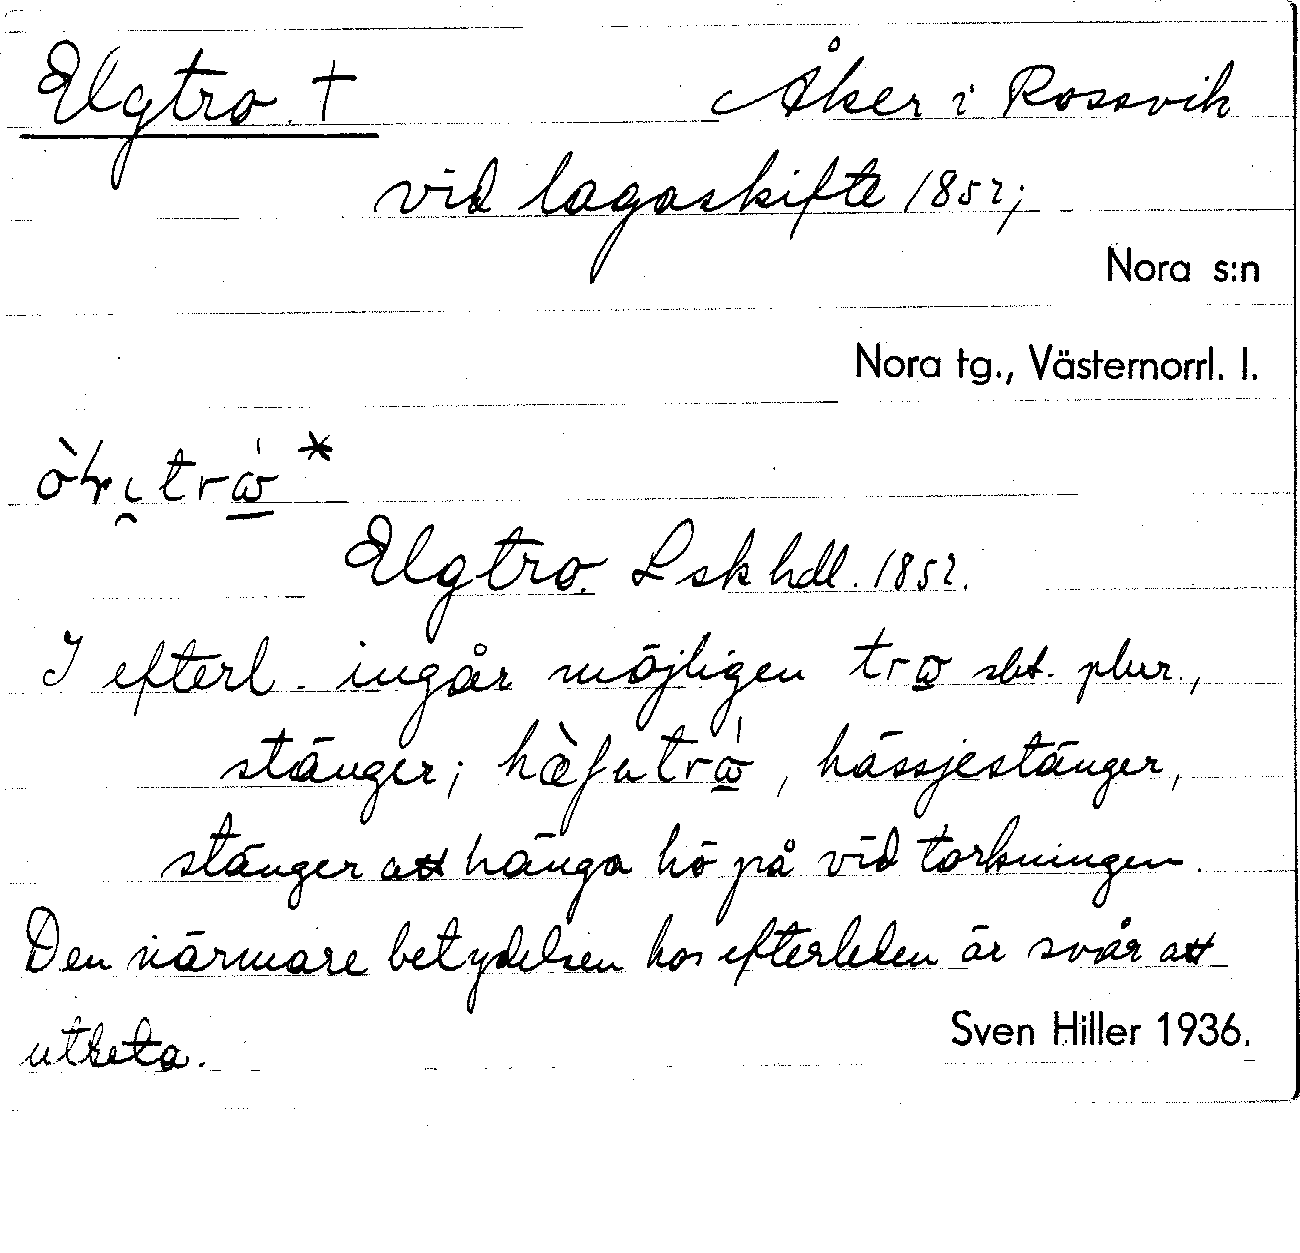 Elgtro. † Åker i Rossvik
vid lagaskifte 1852;
Nora s:n
Nora tg., Västernorrl. l.
*
Elgtro. Lskhdl. 1852.
I efterl. ingår möjligen tro sbt. plur.,
stänger; , hässjestänger,
stänger att hänga hö på vid torkningen.
Den närmare betydelsen hos efterleden är svår att
utreta.
Sven Hiller 1936.